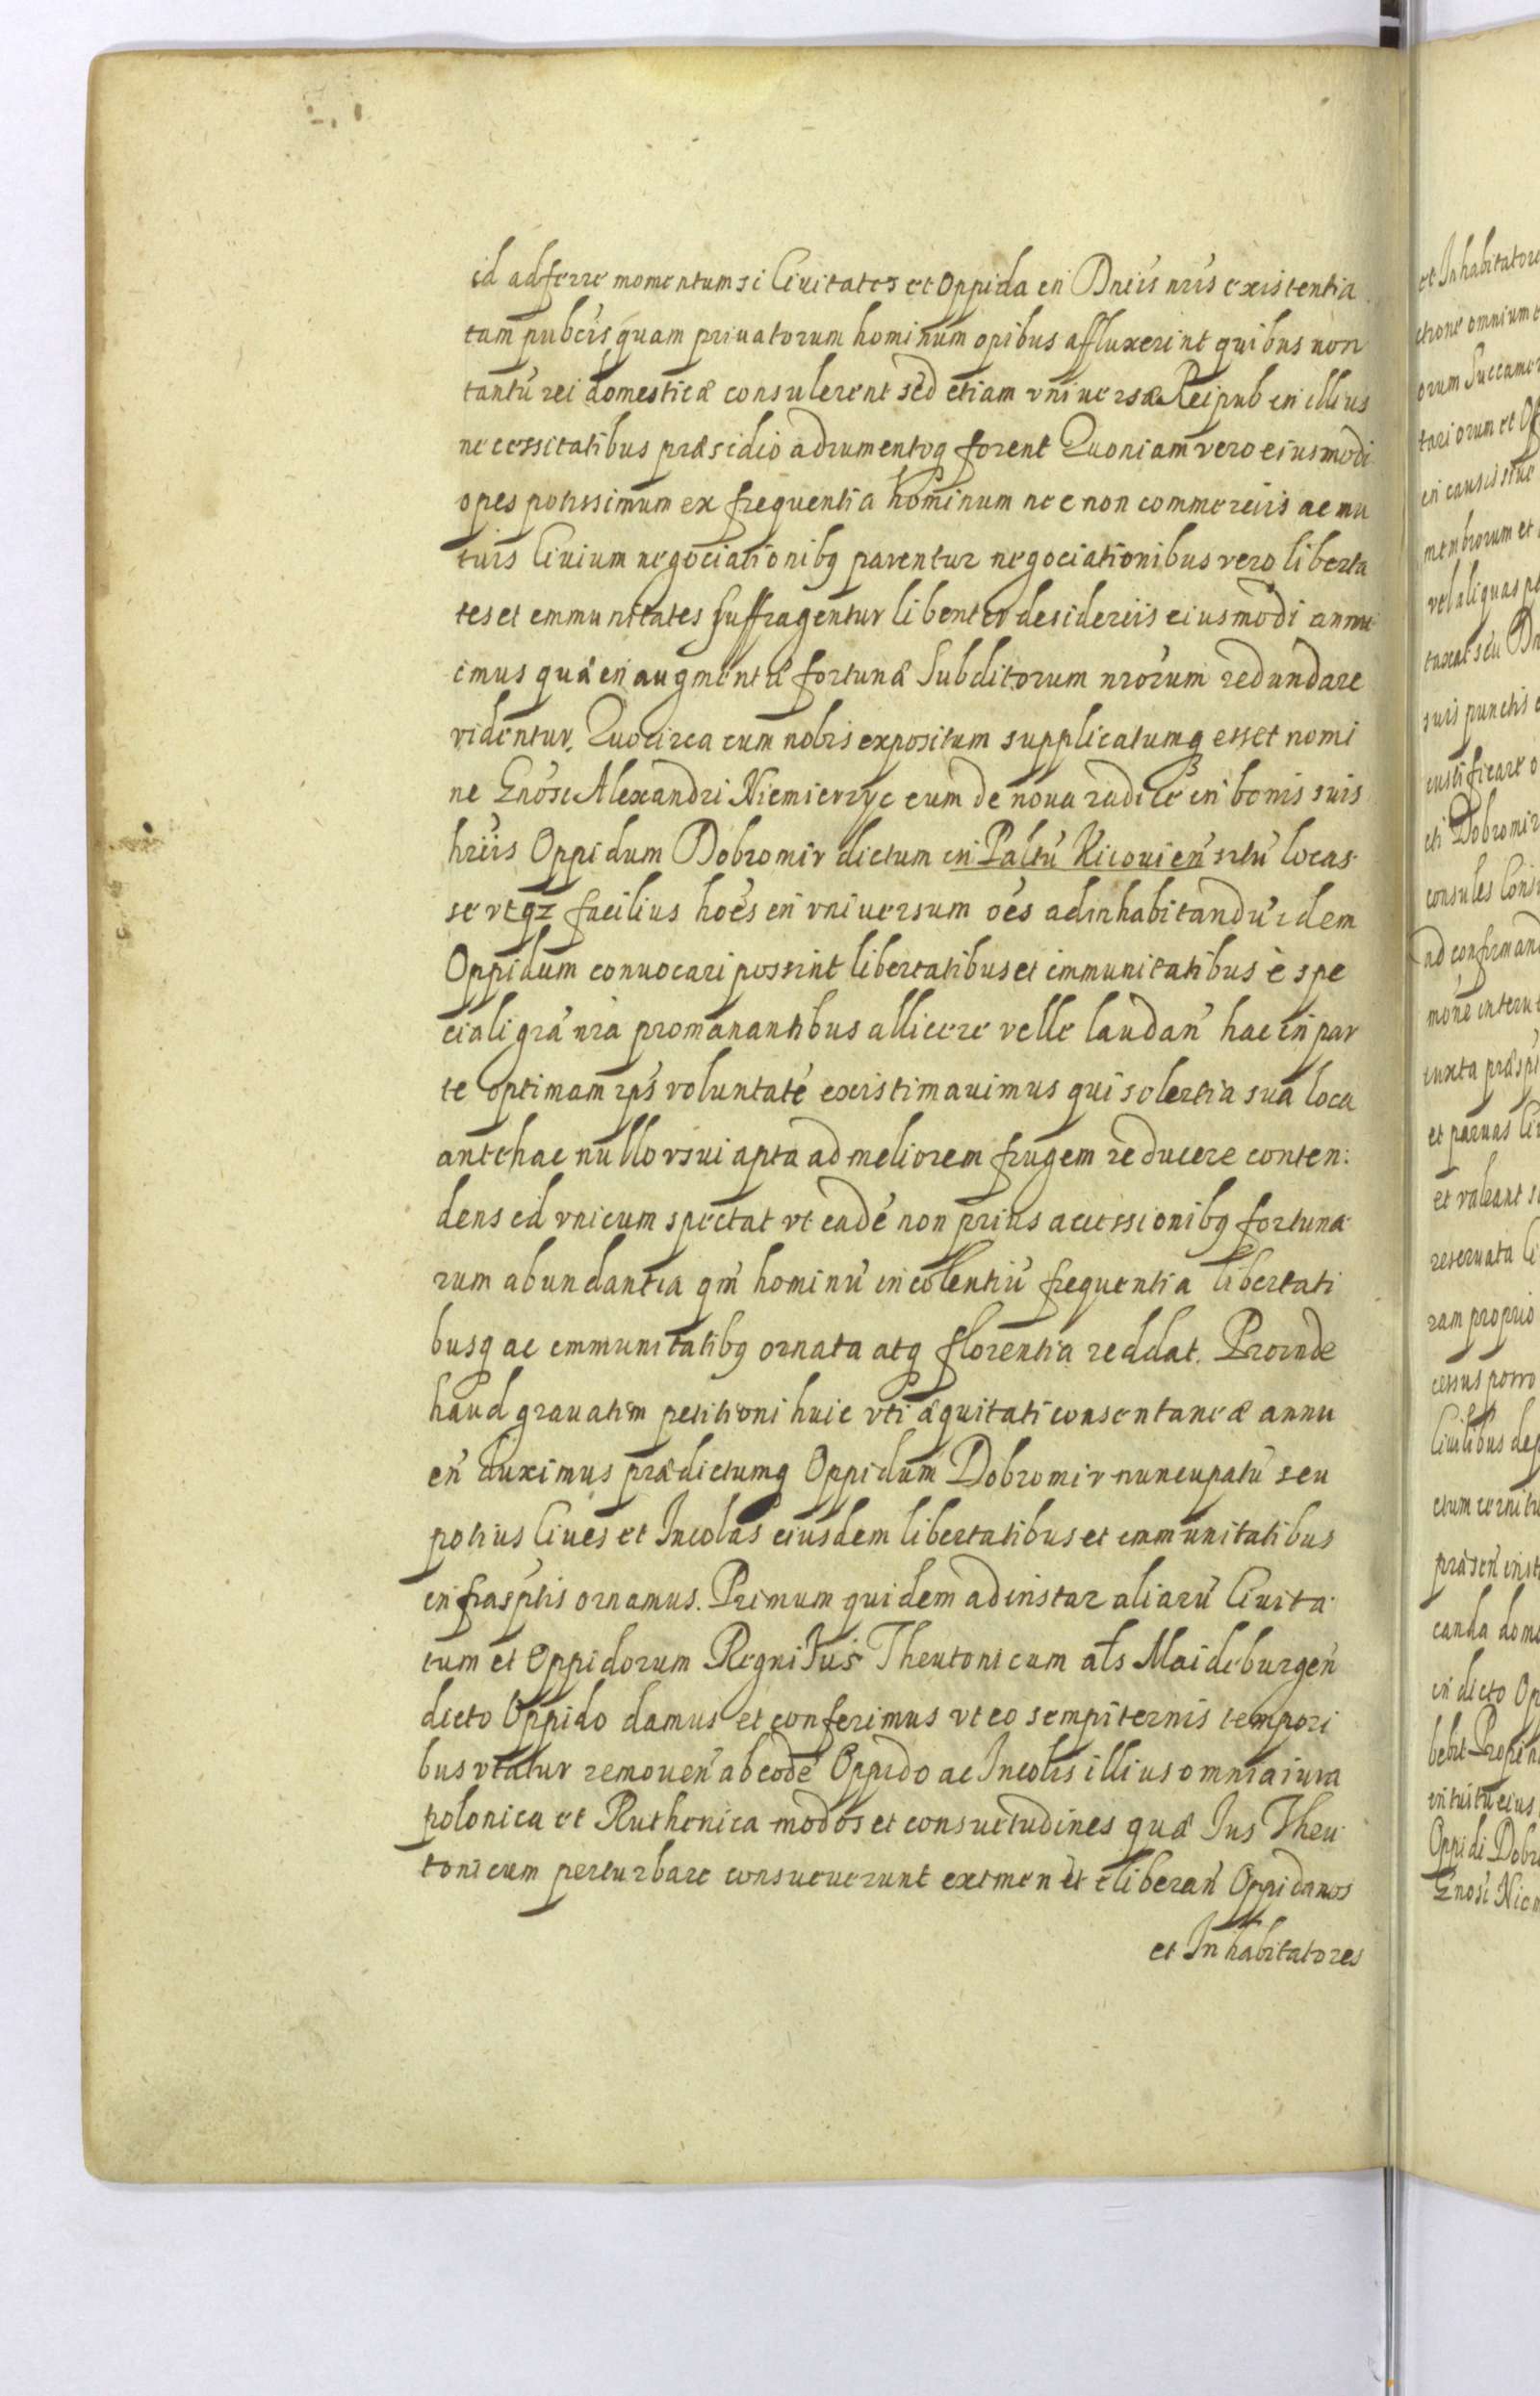 id adferre momentum si Ciuitates et Oppida in Dnijs nris existentia
tam publcis quam priuatorum hominum opibus affluxerint quibus non
tantu rei domesticæ consulerent sed etiam vniuersæ Reipub in illius
necessitatibus præsidio adiumentoq forent Quoniam vero eiusmodi
opes potissimum ex frequentia hominum nec non commerciis ac mu
tuis Ciuium negociationibq parentur negociationibus vero liberta
tes et immunitates suffragentur libenter desideriis eiusmodi annu
imus quæ in augmentu fortunæ Subditorum nrorum redundare
videntur. Quocirca cum nobis expositum supplicatumq esset nomi
ne Gnosi Alexandri Niemierzyc eum de noua radice in bonis suis
hriis Oppidum Dobromir dictum in Paltu Kiiouien situ locas
se vtqz facilius hoes in vniuersum oes ad inhabitandu idem
Oppidum conuocari possint libertatibus et immunitatibus è spe
ciali gra nra promanantibus allicere velle laudan hac in par
te optimam ips voluntate existimauimus qui solertia sua loca
antehac nullo vsui apta ad meliorem frugem reducere conten:
dens id vnicum spectat vt eade non prius accessionibq fortuna
rum abundantia qm hominu incolentiu frequentia libertati
busq ac immunitatibq ornata atq florentia reddat. Proinde
haud grauatim petitioni huic vti æquitati consentaneæ annu
en duximus prædictumq Oppidum Dobromir nuncupatu seu
potius Ciues et Incolas eiusdem libertatibus et immunitatibus
infrasptis ornamus. Primum quidem ad instar aliaru Ciuita
tum et Oppidorum Regni Jus Theutonicum als Maideburgen
dicto Oppido damus et conferimus vt eo sempiternis tempori
bus vtatur remouen ab eode Oppido ac Incolis illius omnia iura
polonica et Ruthenica modos et consuetudines quæ Jus Theu
tonicum perturbare consueuerunt eximen et eliberan Oppidanos
et Inhabitatores
et Inhabitatore
ctione omnium
orum Succamer
tariorum et Of
in causis siue
membrorum et
vel aliquas
taxat seu
suis punctis
iustificare
cti Dobromir
consules
ad confirmand
mone interu
iuxta præspt
et paruas
et valeant
reseruata
ram proprio
cessus porro
Ciuilibus
ctum cernitu
præsen
canda
in dicto Op
bebit Propin
intuitu eius
Oppidi Dobro
Gnosi